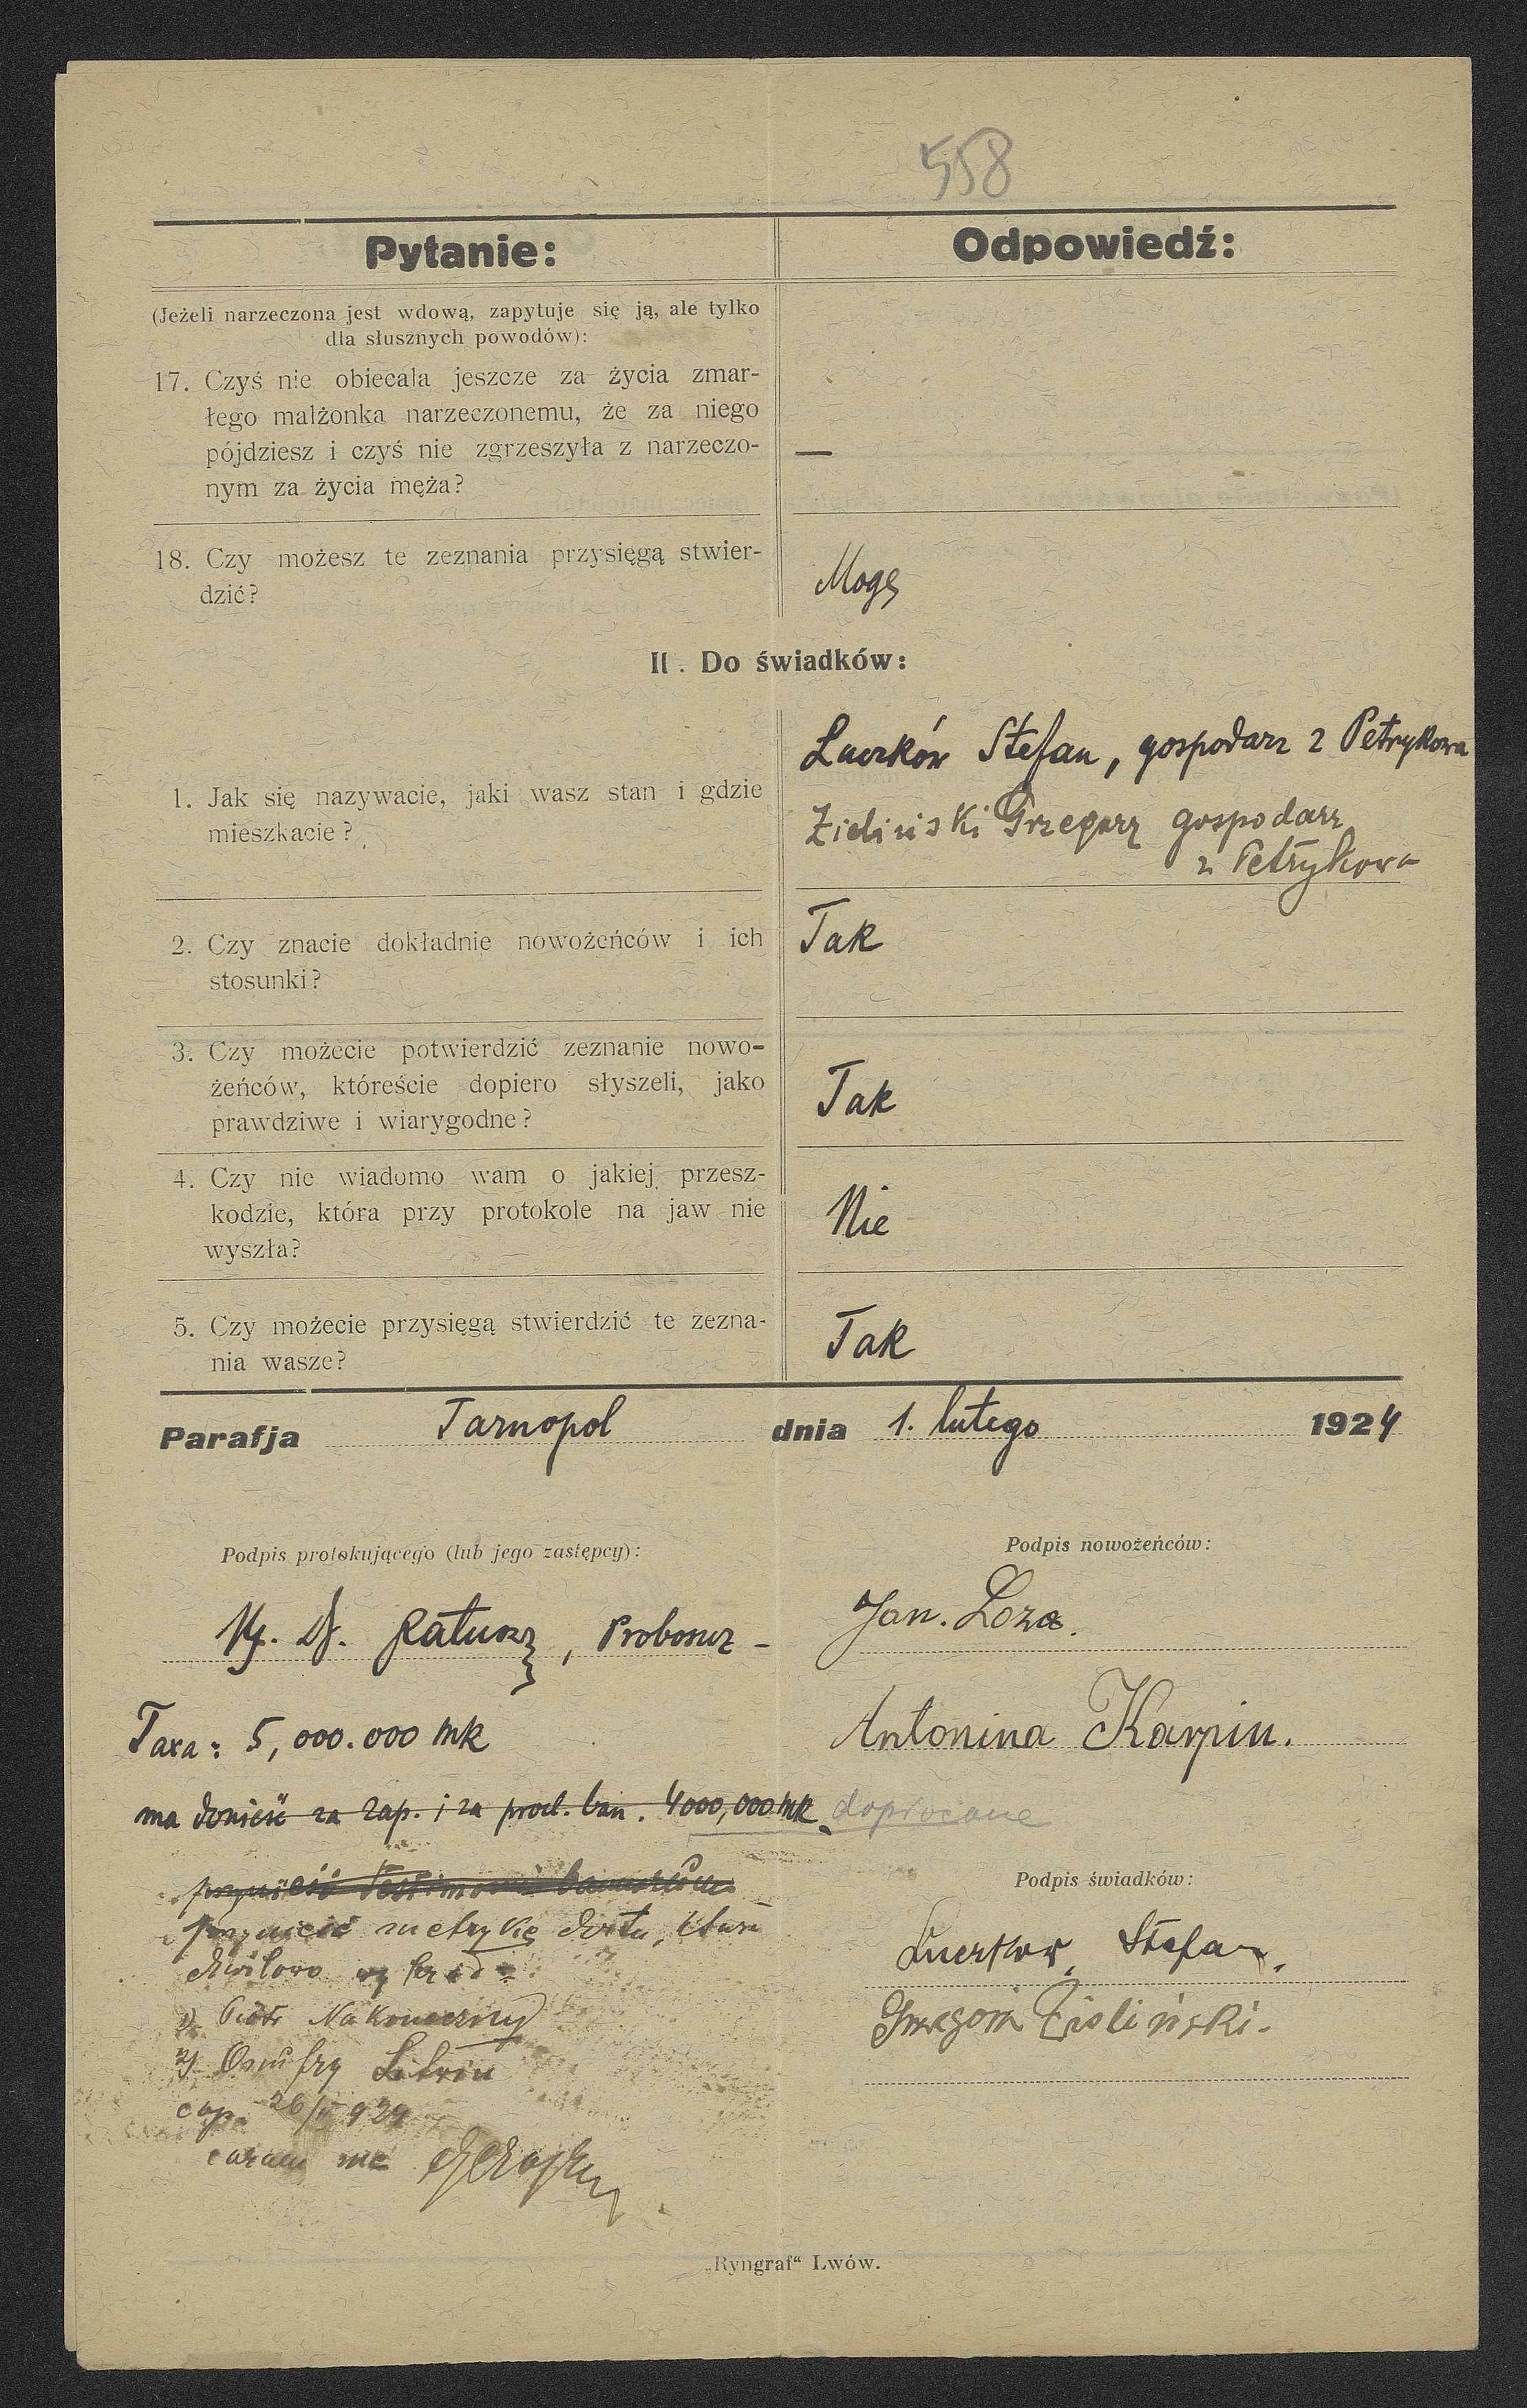 558
Pytanie:
Odpowiedź:
(Jeżeli narzeczona jest wdową, zapytuje się ją, ale tylko
dla słusznych powodów):
17. Czyś nie obiecala jeszcze za życia zmar-
łego małżonka narzeczonemu, że za niego
pójdziesz i czyś nie zgrzeszyła z narzeczo-
nym za życia męża?
—
18. Czy możesz te zeznania przysięgą stwier-
dzić?
Mogę
II. Do świadków:
1. Jak się nazywacie, jaki wasz stan i gdzie
mieszkacie?
Łuczków Stefan, gospodarz z Petrykowa
Zieliński Grzegorz gospodarz
z Petrykowa
2. Czy znacie dokładnie nowożeńców i ich
stosunki?
Tak
3. Czy możecie potwierdzić zeznanie nowo-
żeńców, któreście dopiero słyszeli, jako
prawdziwe i wiarygodne?
Tak
4. Czy nie wiadomo wam o jakiej przesz-
kodzie, która przy protokole na jaw nie
wyszła?
Nie
5. Czy możecie przysięgą stwierdzić te zezna-
nia wasze?
Tak
Parafja Tarnopol dnia 1. lutego 1924
Podpis protokującego (lub jego zastępcy):
Ratusz, Proboszcz
Taxa: 5,000.000 mk
ma donieść za zap. i za procl. ban. 4000,000 mk dopłacone
przynieść metrykę
1) Piotr Nakoneczny
2) Onufry
cop. 26/ 924
Podpis nowożeńców:
Jan. Łoza.
Antonina Karpin.
Podpis świadków:
Łuczkow, Stefan.
Grzegorz Zieliński.
„Ryngraf" Lwów.